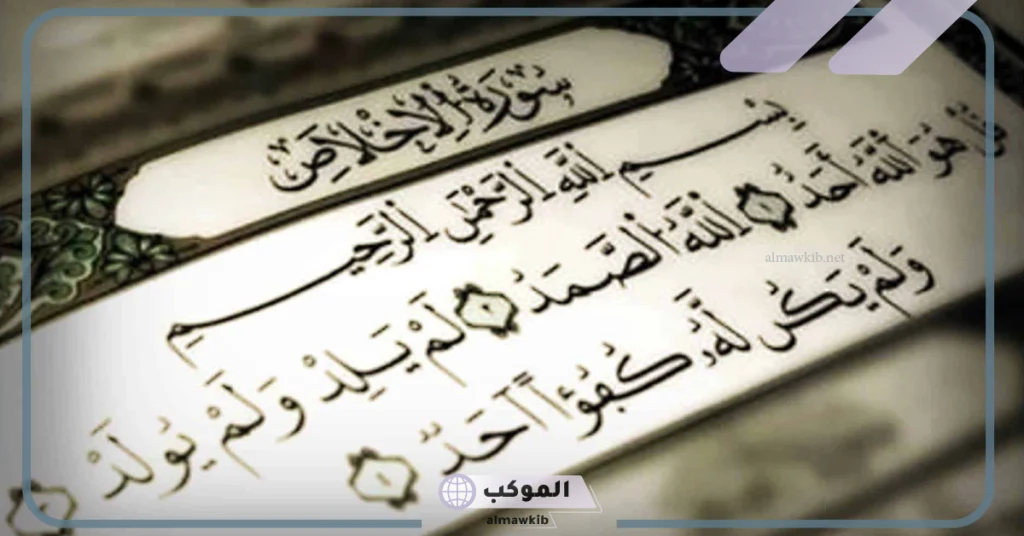 سُورَةُ الإِخْلَاصِ
بِسْمِ اللَّهِ الرَّحْمَٰنِ الرَّحِيمِ
قُلْ هُوَ اللَّهُ أَحَدٌ ۝ اللَّهُ الصَّمَدُ ۝ لَمْ يَلِدْ وَلَمْ يُولَدْ ۝
وَلَمْ يَكُن لَّهُ كُفُوًا أَحَدٌ ۝
almawkib.net
الموكب
almawkib